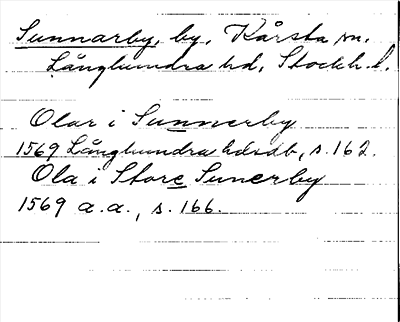 Sunnarby, by, Kårsta sn.
Långhundra hd, Stockh. l.
Olar i Sunnerby
1569 Långhundra hdsdb, s. 162.
Ola i Store Sunerby
1569 a.a., s. 166.